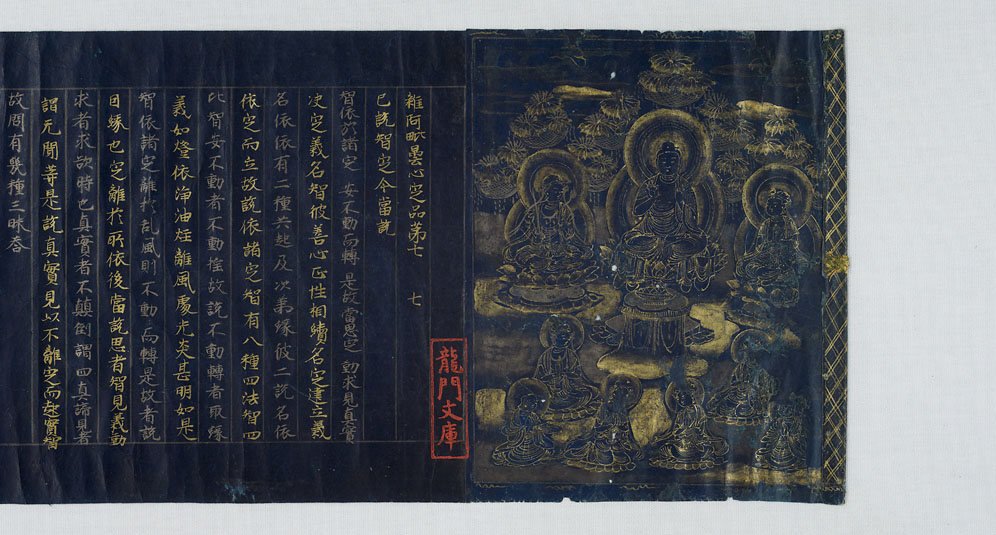 雜阿毗曇心定品第七　七
已說智定今當說
智依於諸定　安不動而轉　是故當思定　勤求見真實
決定義名智彼善心正性相續名定建立義
名依依有二種共起及次第緣彼二說名依
依定而立故說依諸定智有八種四法智四
比智安不動者不動慞故說不動轉者取緣
義如燈依淨油炷離風處光炎甚明如是
智依諸定離於乱風則不動而轉是故者說
因緣也定離於所依後當說思者智見義勤
求者求欲時也真實者不顛倒謂四真諦見者
謂无閒等是說真實見以不離定而起實智
故問有幾種三昧荅
龍門文庫